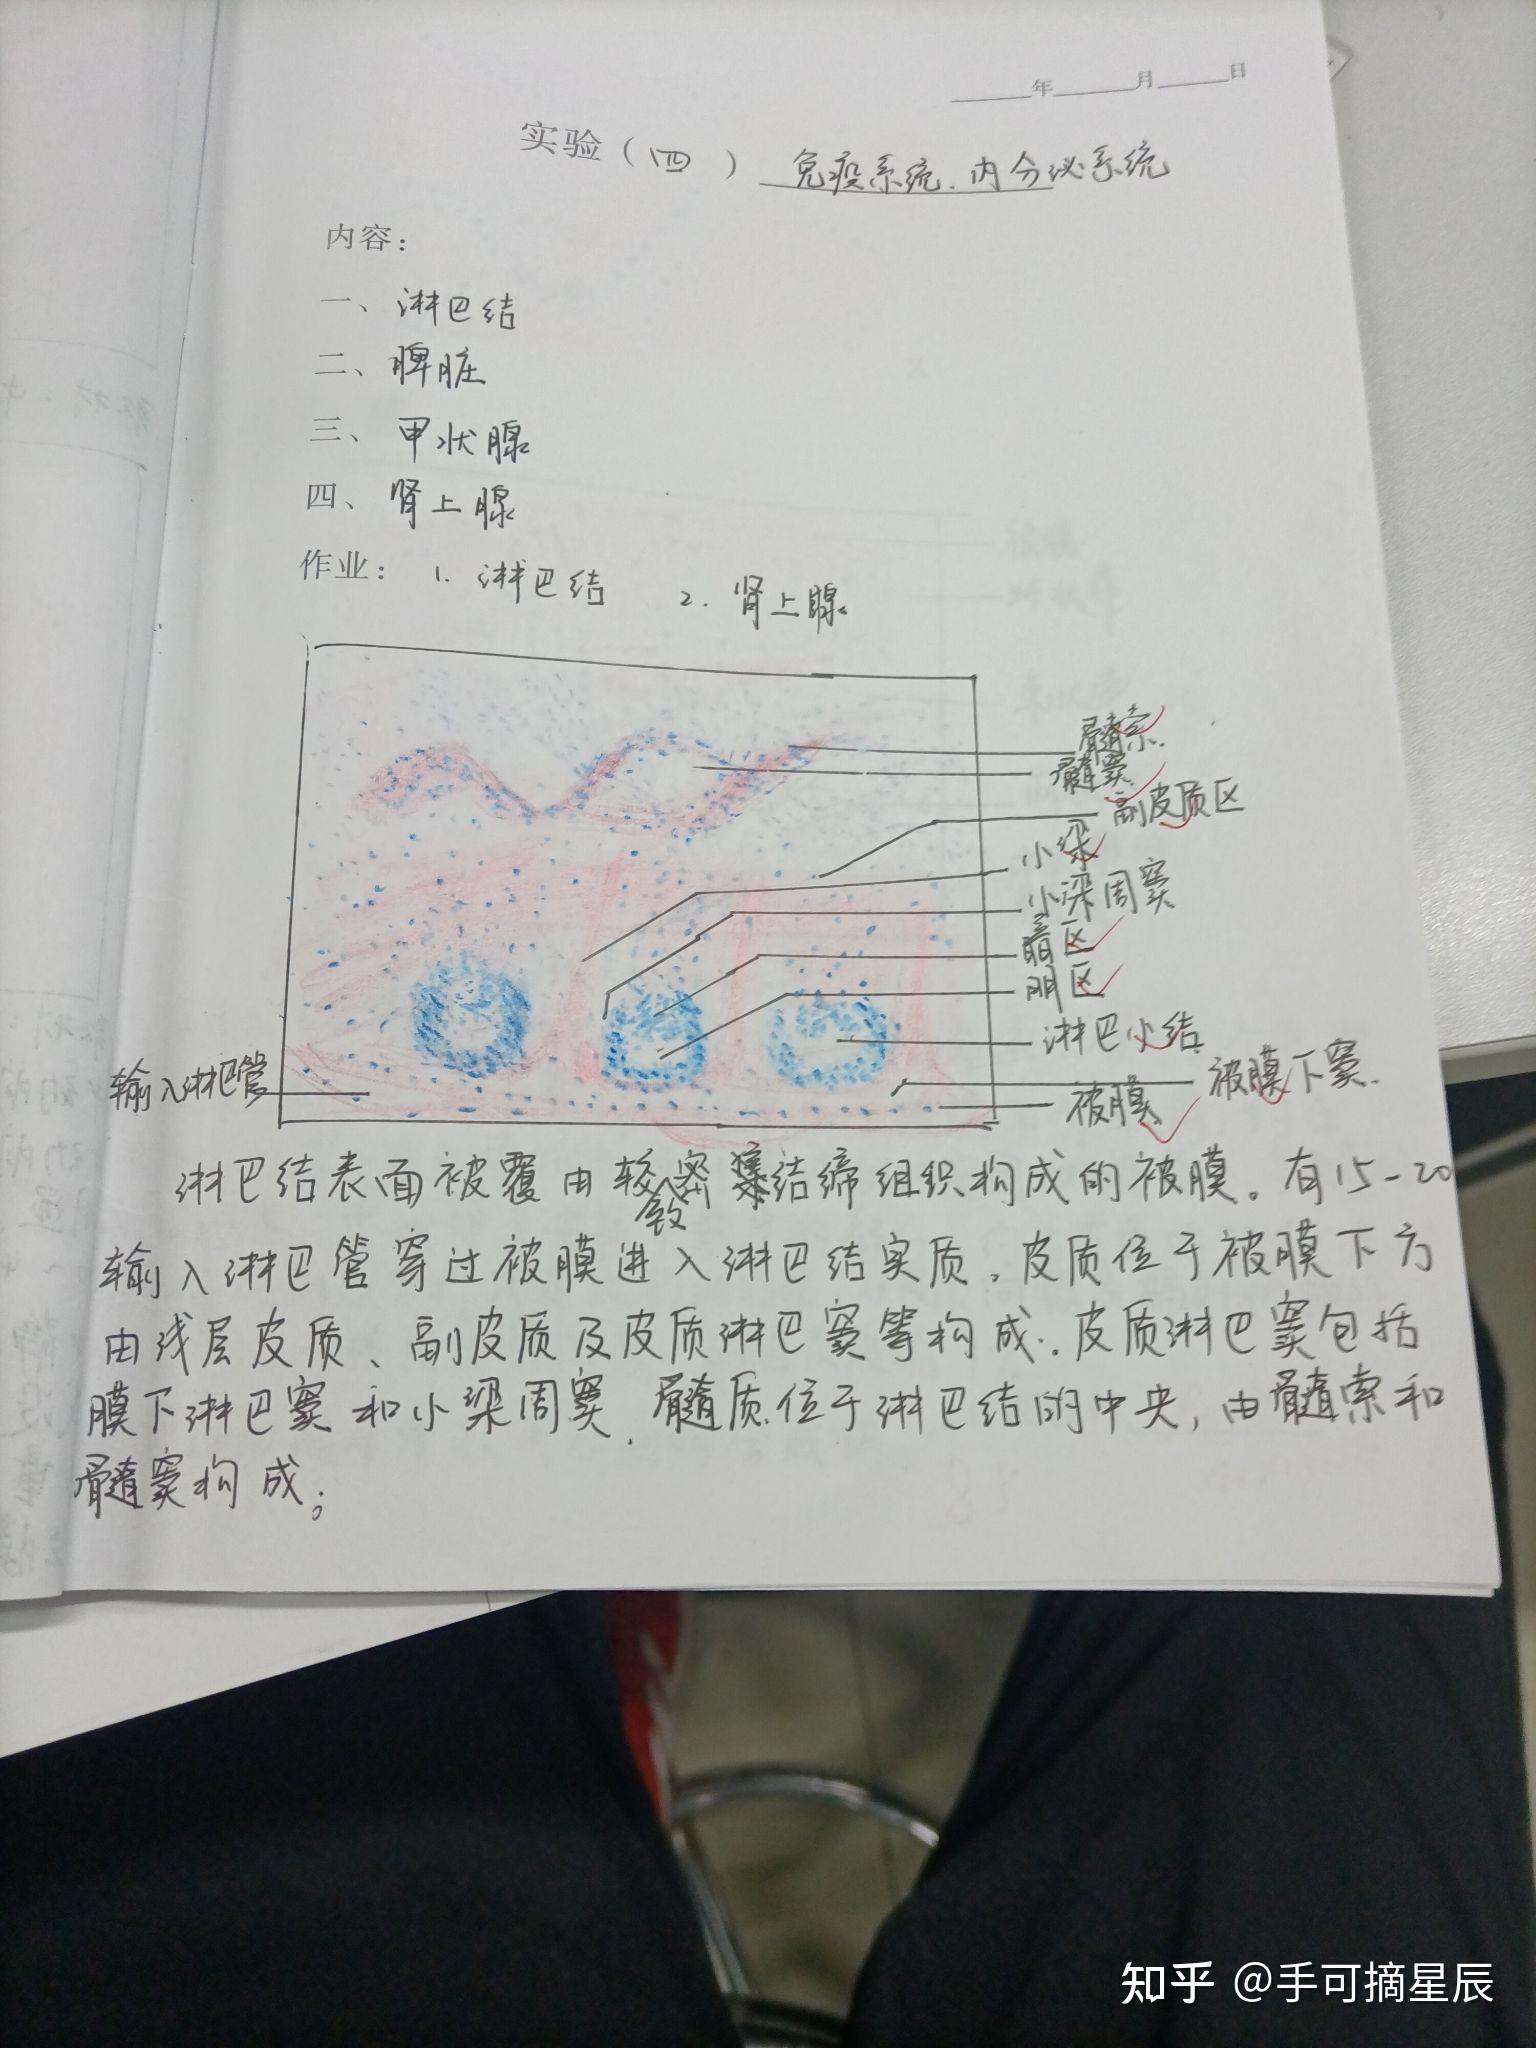 年 月 日
实验（四） 免疫系统、内分泌系统
内容：
一、淋巴结
二、脾脏
三、甲状腺
四、肾上腺
作业： 1. 淋巴结 2. 肾上腺
髓索
髓窦
副皮质区
小梁
小梁周窦
暗区
明区
淋巴小结
被膜下窦
被膜
输入淋巴管
淋巴结表面被覆由较致密结缔组织构成的被膜。有15-20
输入淋巴管穿过被膜进入淋巴结实质。皮质位于被膜下方
由浅层皮质、副皮质及皮质淋巴窦等构成。皮质淋巴窦包括
膜下淋巴窦和小梁周窦。髓质位于淋巴结的中央，由髓索和
髓窦构成；
知乎 @手可摘星辰